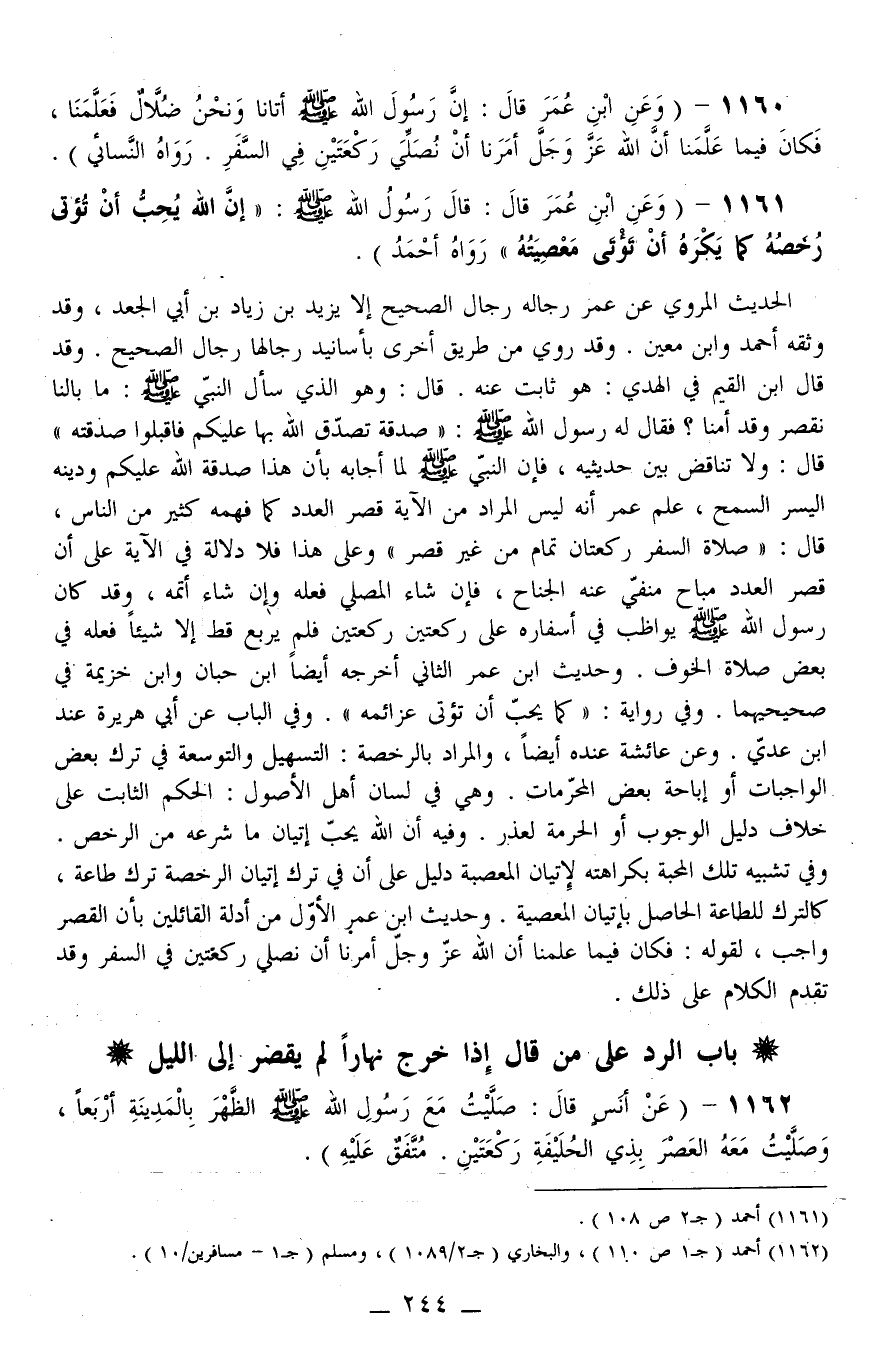 ١١٦٠ – ( وَعَنِ ابْنِ عُمَرَ قالَ : إنَّ رَسُولَ الله ﷺ أتانا وَنحْنُ ضُلَّالٌ فَعَلَّمَنَا ،
فَكانَ فيما عَلَّمَنا أنَّ الله عَزَّ وَجَلَّ أمَرَنا أنْ نُصَلِّيَ رَكْعَتَيْنِ فِي السَّفَرِ . رَوَاهُ النَّسائي ) .
١١٦١ – ( وَعَنِ ابْنِ عُمَرَ قالَ : قالَ رَسُولُ الله ﷺ : « إنَّ الله يُحِبُّ أنْ تُؤتى
رُخَصُهُ كما يَكْرَهُ أنْ تَؤْتَى مَعْصِيَتُهُ » رَوَاهُ أحْمَدُ ) .
الحديث المروي عن عمر رجاله رجال الصحيح إلا يزيد بن زياد بن أبي الجعد ، وقد
وثقه أحمد وابن معين . وقد روي من طريق أخرى بأسانيد رجالها رجال الصحيح . وقد
قال ابن القيم في الهدي : هو ثابت عنه . قال : وهو الذي سأل النبيّ ﷺ : ما بالنا
نقصر وقد أمنا ؟ فقال له رسول الله ﷺ : « صدقة تصدّق الله بها عليكم فاقبلوا صدقته »
قال : ولا تناقض بين حديثيه ، فإن النبيّ ﷺ لما أجابه بأن هذا صدقة الله عليكم ودينه
اليسر السمح ، علم عمر أنه ليس المراد من الآية قصر العدد كما فهمه كثير من الناس ،
قال : « صلاة السفر ركعتان تمام من غير قصر » وعلى هذا فلا دلالة في الآية على أن
قصر العدد مباح منفيّ عنه الجناح ، فإن شاء المصلي فعله وإن شاء أتمه ، وقد كان
رسول الله ﷺ يواظب في أسفاره على ركعتين ركعتين فلم يربع قط إلا شيئاً فعله في
بعض صلاة الخوف . وحديث ابن عمر الثاني أخرجه أيضاً ابن حبان وابن خزيمة في
صحيحيهما . وفي رواية : « كما يحبّ أن تؤتى عزائمه » . وفي الباب عن أبي هريرة عند
ابن عديّ . وعن عائشة عنده أيضاً ، والمراد بالرخصة : التسهيل والتوسعة في ترك بعض
الواجبات أو إباحة بعض المحرّمات . وهي في لسان أهل الأصول : الحكم الثابت على
خلاف دليل الوجوب أو الحرمة لعذر . وفيه أن الله يحبّ إتيان ما شرعه من الرخص .
وفي تشبيه تلك المحبة بكراهته لإتيان المعصبة دليل على أن في ترك إتيان الرخصة ترك طاعة ،
كالترك للطاعة الحاصل بإتيان المعصية . وحديث ابن عمر الأوّل من أدلة القائلين بأن القصر
واجب ، لقوله : فكان فيما علمنا أن الله عزّ وجلّ أمرنا أن نصلي ركعتين في السفر وقد
تقدم الكلام على ذلك .
باب الرد على من قال إذا خرج نهاراً لم يقصر إلى الليل
١١٦٢ – ( عَنْ أنَسٍ قالَ : صَلَّيْتُ مَعَ رَسُولِ الله ﷺ الظَّهْرَ بِالْمَدِينَةِ أرْبَعاً ،
وَصَلَّيْتُ مَعَهُ العَصْرَ بِذِي الحُلَيْفَةِ رَكْعَتَيْنِ . مُتَّفَقٌ عَلَيْهِ ) .
(١١٦١) أحمد ( جـ٢ ص ١٠٨ ) .
(١١٦٢) أحمد ( جـ١ ص ١١٠ ) ، والبخاري ( جـ١٠٨٩/٢ ) ، ومسلم ( جـ١ – مسافرين/١٠ ) .
— ٢٤٤ —